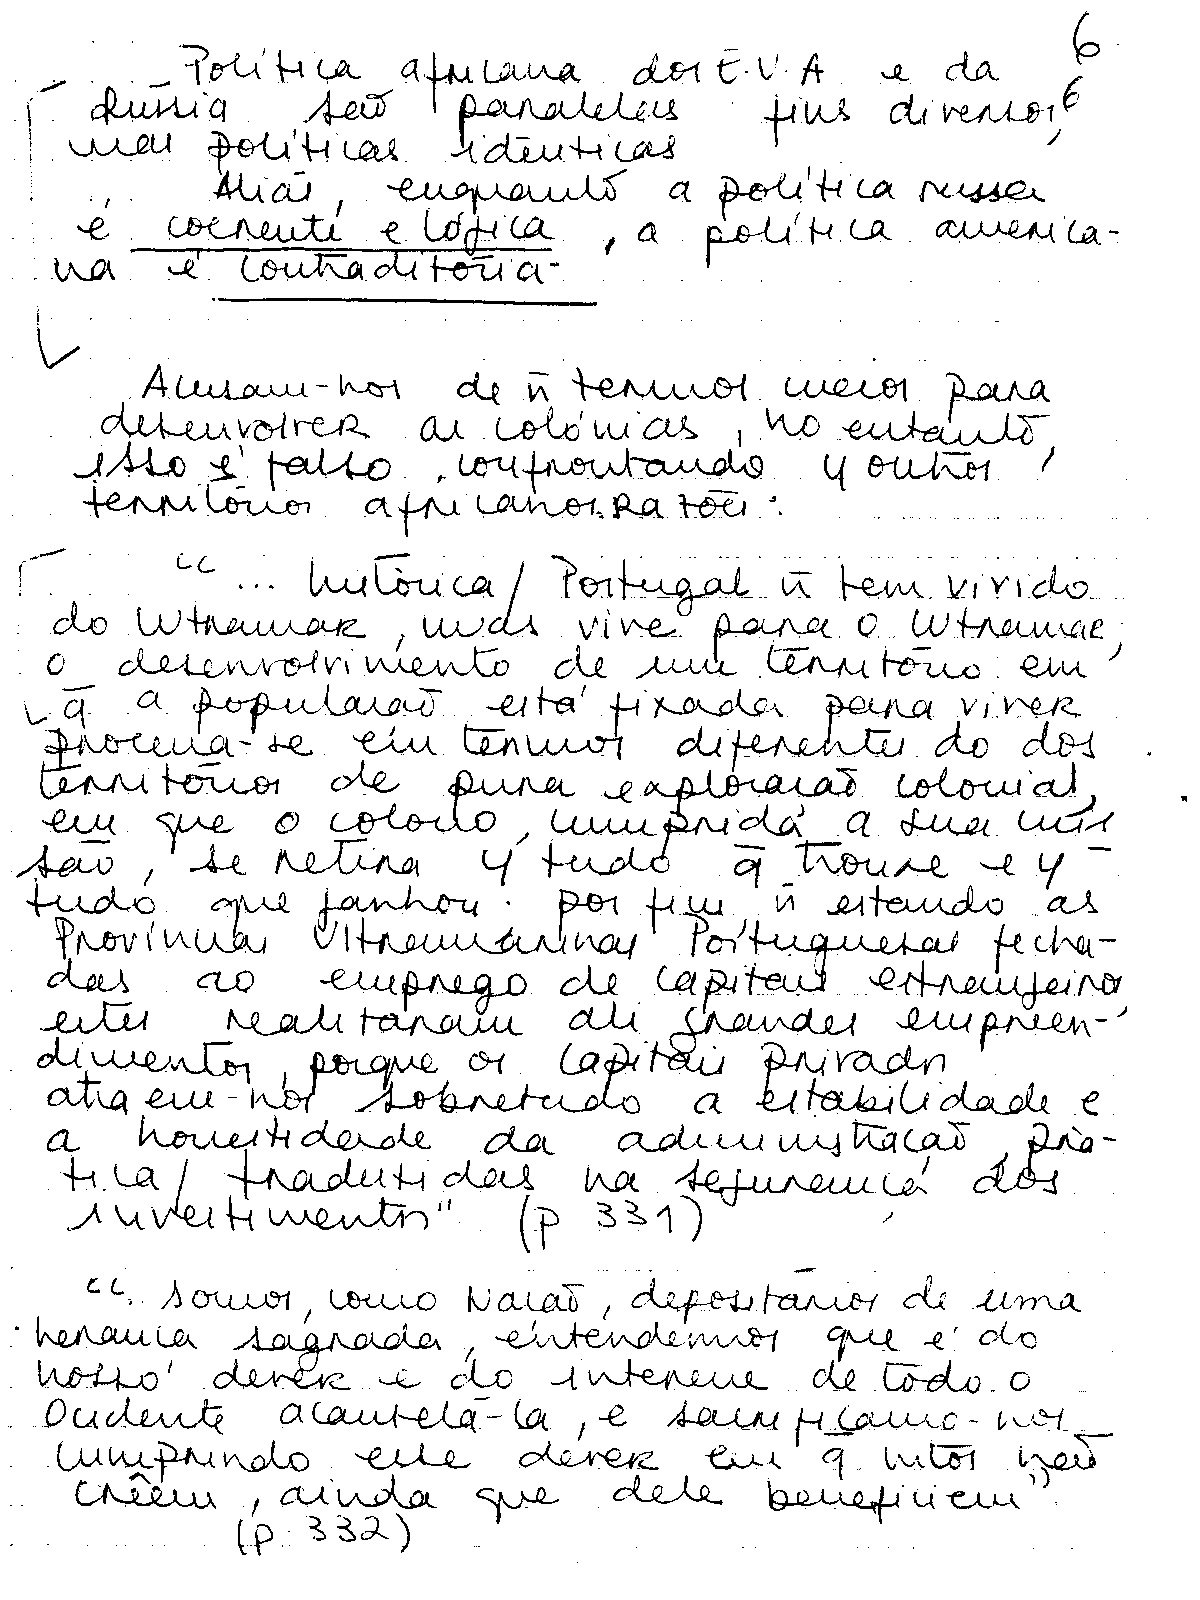 6
Política africana dos E.U.A e da
Rússia são paralelas fins diversos, 6
mas políticas idênticas
Aliás, enquanto a política russa
é coerente e lógica, a política america-
na é contraditória-
Acusam-nos de ñ termos meios para
desenvolver as colónias, no entanto,
isso é falso, confrontando c/ outros
territórios africanos. Razões:
"... historica/ Portugal ñ tem vivido
do Ultramar, mas vive para o Ultramar,
o desenvolvimento de um território em
q̄ a população está fixada para viver
processa-se em termos diferentes do dos
territórios de pura exploração colonial,
em que o colono, cumprida a sua mis
são, se retira c/ tudo q̄ trouxe e c/
tudo que ganhou. por fim, ñ estando as
Províncias Ultramarinas Portuguesas fecha-
das ao emprego de capitais estrangeiros,
estes realizaram ali grandes empreen-
dimentos, porque os capitais privados
atraem-nos sobretudo a estabilidade e
a honestidade da administração, prà-
tica/ traduzidas na segurança dos
investimentos" (p 331)
"Somos, como Nação, depositários de uma
herança sagrada, entendemos que é do
nosso dever e do interesse de todo o
Ocidente acautelá-la, e sacrificamo-nos
cumprindo esse dever em q̄ mtos não
crêem, ainda que dele beneficiem"
(p. 332)